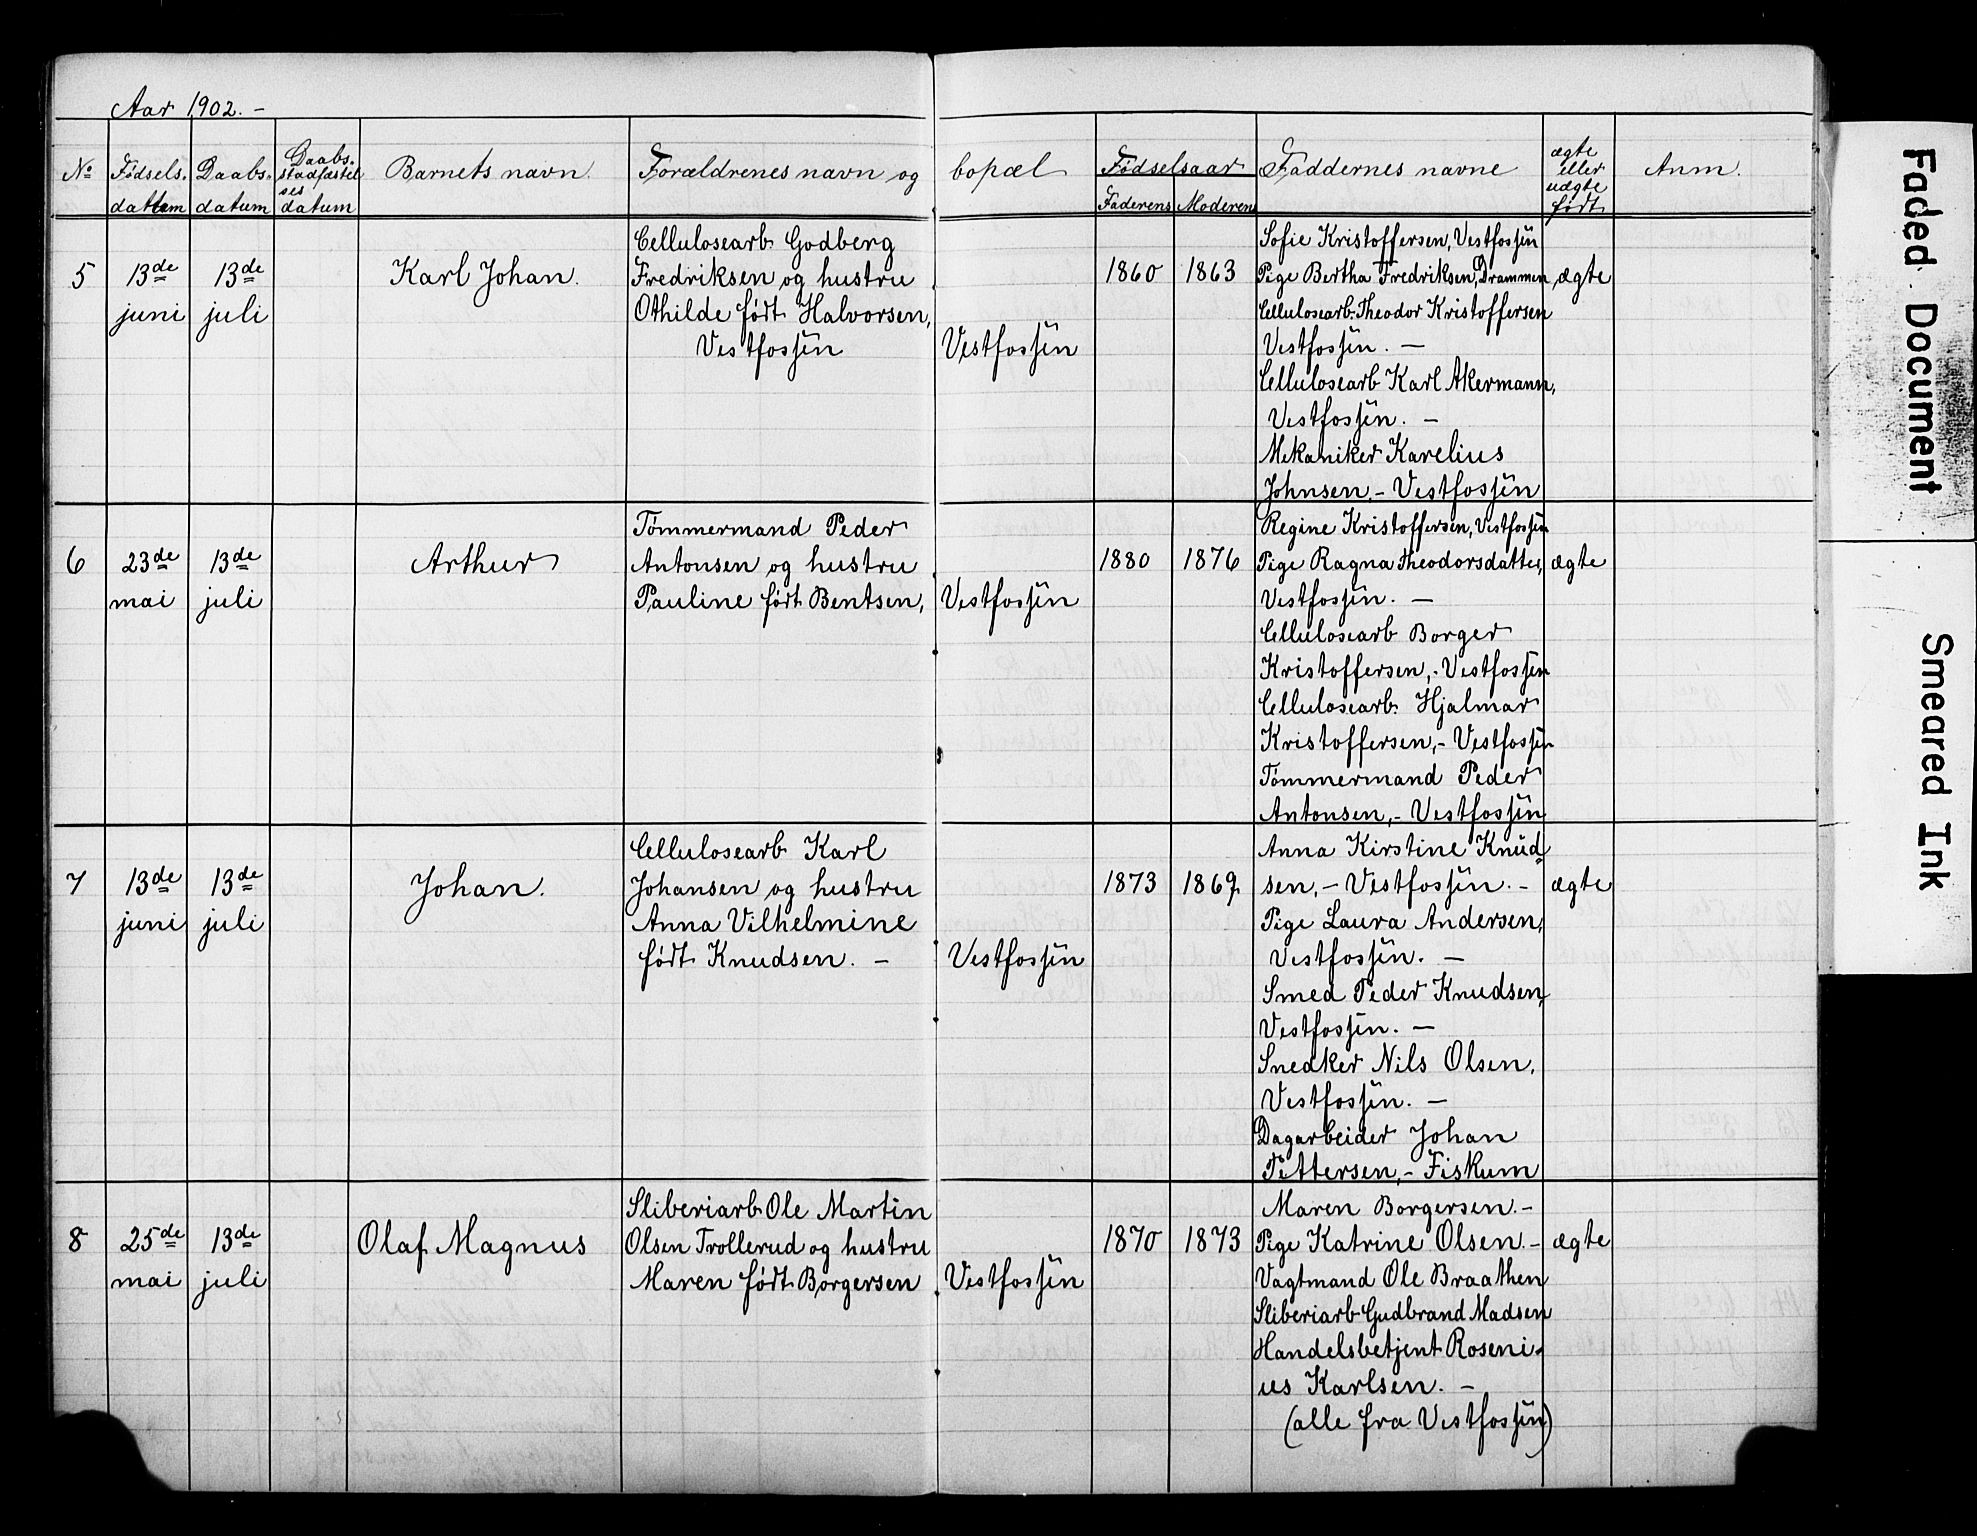 Aar 1902. -
No Fødsels- datum Daabs- datum Daabs- stadfæstel ses datum Barnets navn. Forældrenes navn og bopæl Fødselsaar Faderens Moderens Faddernes navne ægte eller uægte født Anm.
5 13de juni 13de juli Karl Johan. 1860 1863 ægte
Cellulosearb Godberg
Fredriksen og hustru
Othilde født Halvorsen,
Vestfossen Vestfossen
Sofie Kristoffersen, Vestfossen
Pige Bertha Fredriksen, Drammen
Cellulosearb. Theodor Kristoffersen
Vestfossen. -
Cellulosearb Karl Akermann,
Vestfossen. -
Mekaniker Karelius
Johnsen, - Vestfossen
6 23de mai 13de juli Arthur 1880 1876 ægte
Tømmermand Peder
Antonsen og hustru
Pauline født Bentsen, Vestfossen
Regine Kristoffersen, Vestfossen
Pige Ragna Theodorsdatter,
Vestfossen. -
Cellulosearb Borger
Kristoffersen, - Vestfossen
Cellulosearb. Hjalmar
Kristoffersen, - Vestfossen
Tømmermand Peder
Antonsen, - Vestfossen
7 13de juni 13de juli Johan. 1873 1869 ægte
Cellulosearb Karl
Johansen og hustru
Anna Vilhelmine
født Knudsen. - Vestfossen
Anna Kirstine Knud-
sen, - Vestfossen. -
Pige Laura Andersen,
Vestfossen. -
Smed Peder Knudsen,
Vestfossen. -
Snedker Nils Olsen,
Vestfossen. -
Dagarbeider Johan
Pettersen, - Fiskum
8 25de mai 13de juli Olaf Magnus 1870 1873 ægte
Sliberiarb Ole Martin
Olsen Trollerud og hustru
Maren født Borgersen Vestfossen
Maren Borgersen. -
Pige Katrine Olsen. -
Vagtmand Ole Braathen
Sliberiarb Gudbrand Madsen
Handelsbetjent Roseni-
us Karlsen. -
(alle fra Vestfossen)
Faded Document
Smeared Ink